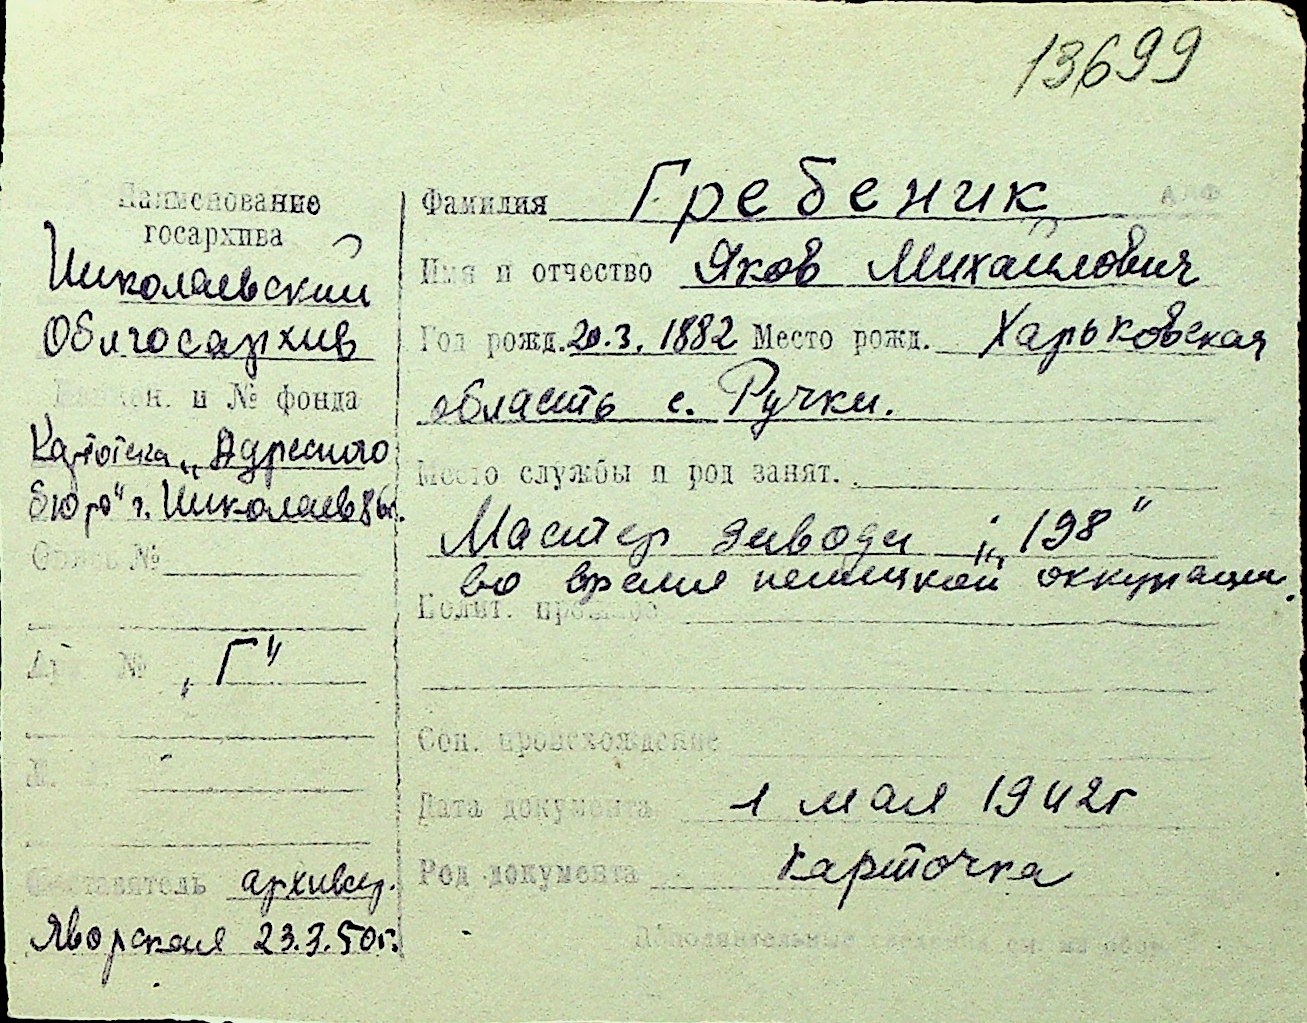 13699
Наименование
госархива
Николаевский
Облгосархив
Наимен. и № фонда
Картотека „Адресного
бюро" г. Николаев
Опись №
Арх. №
„Г"
Составитель архивар.
Яворская 23.3.50г.
Фамилия Гребеник
Имя и отчество Яков Михайлович
Год рожд. 20.3.1882 Место рожд. Харьковская
область с. Ручки.
Место службы и род занят.
Мастер завода „198"
во время немецкой оккупации.
Полит.
Соц. происхождение
Дата документа 1 мая 1942г
Род документа карточка
Дополнительные сведения см. на обор.